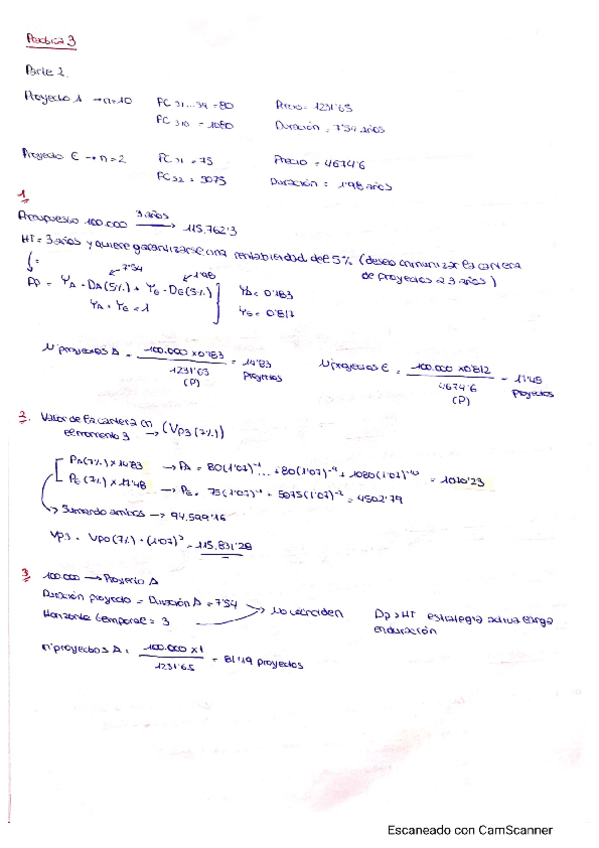 Practica 3
Parte 2.
Proyecto A → n=10 FC 31...39 = 80 Precio = 1231'65
FC 310 = 1080 Duración = 7'54 años
Proyecto E → n=2 FC 31 = 75 Precio = 4674'6
FC 32 = 5075 Duración = 1'98 años
1.
Presupuesto 100.000 3 años → 115.762'3
HT = 3 años y quiere garantizarse una rentabilidad del 5% (deseo inmunizar la cartera
de proyectos a 3 años)
7'54 1'98
Dp = YA · DA(5%) + YE · DE(5%) YA = 0'183
YA + YE = 1 YE = 0'817
Nº proyectos A = 100.000 x 0'183 / 1231'65 (P) = 14'83 proyectos
Nº proyectos E = 100.000 x 0'812 / 4674'6 (P) = 17'48 proyectos
2. Valor de la cartera en
el momento 3 → (Vp3 (7%))
PA(7%) x 14'83 → PA = 80(1'07)⁻¹ ... +80(1'07)⁻⁹ + 1080(1'07)⁻¹⁰ = 1010'23
PE(7%) x 17'48 → PE = 75(1'07)⁻¹ + 5075(1'07)⁻² = 4502'79
→ Sumando ambos → 94.599'16
Vp3 = Vp0(7%) · (1'07)³ = 115.831'28
3. 100.000 → Proyecto A
Duración proyecto = Duración A = 7'54
Horizonte temporal = 3 → No coinciden Dp > HT estrategia activa larga
en duración
nº proyectos A = 100.000 x 1 / 1231'65 = 81'19 proyectos
Escaneado con CamScanner